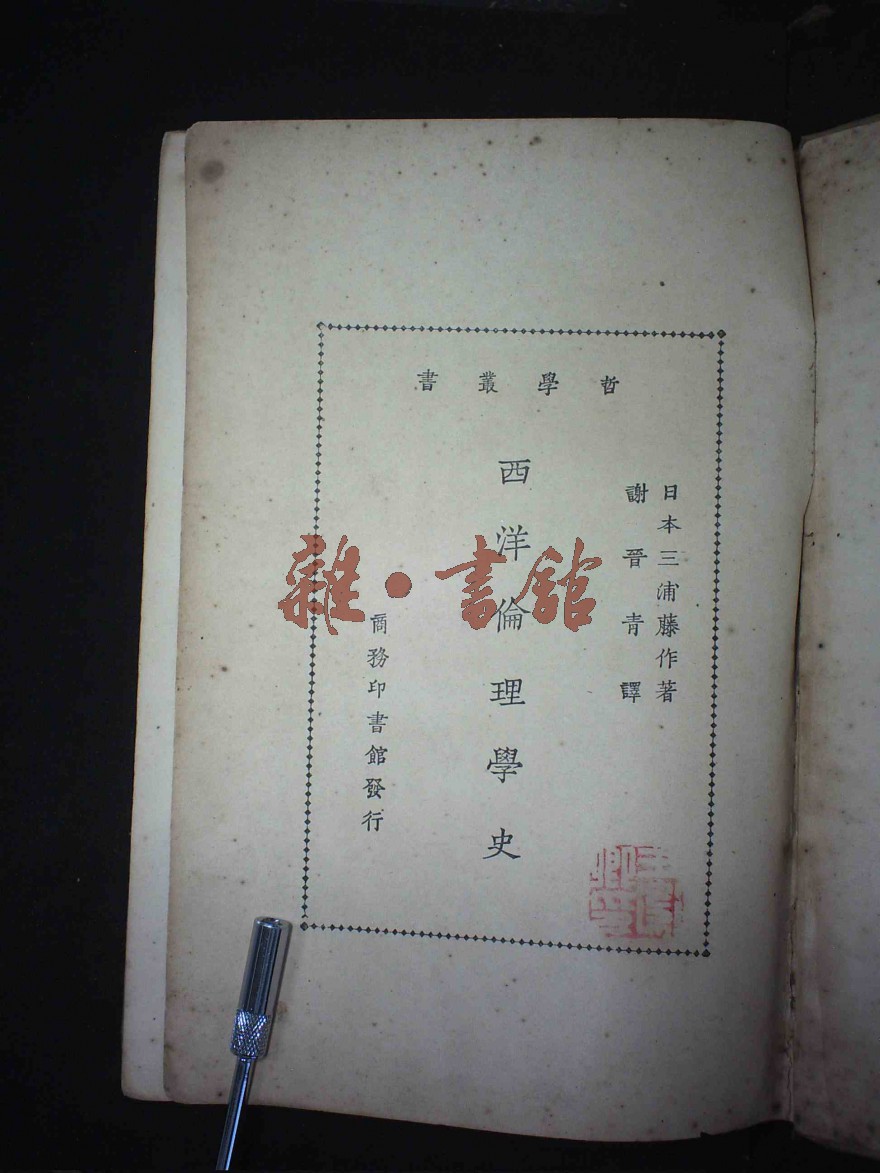 哲學叢書
日本三浦藤作著
謝晉青譯
西洋倫理學史
商務印書館發行
雜·書館